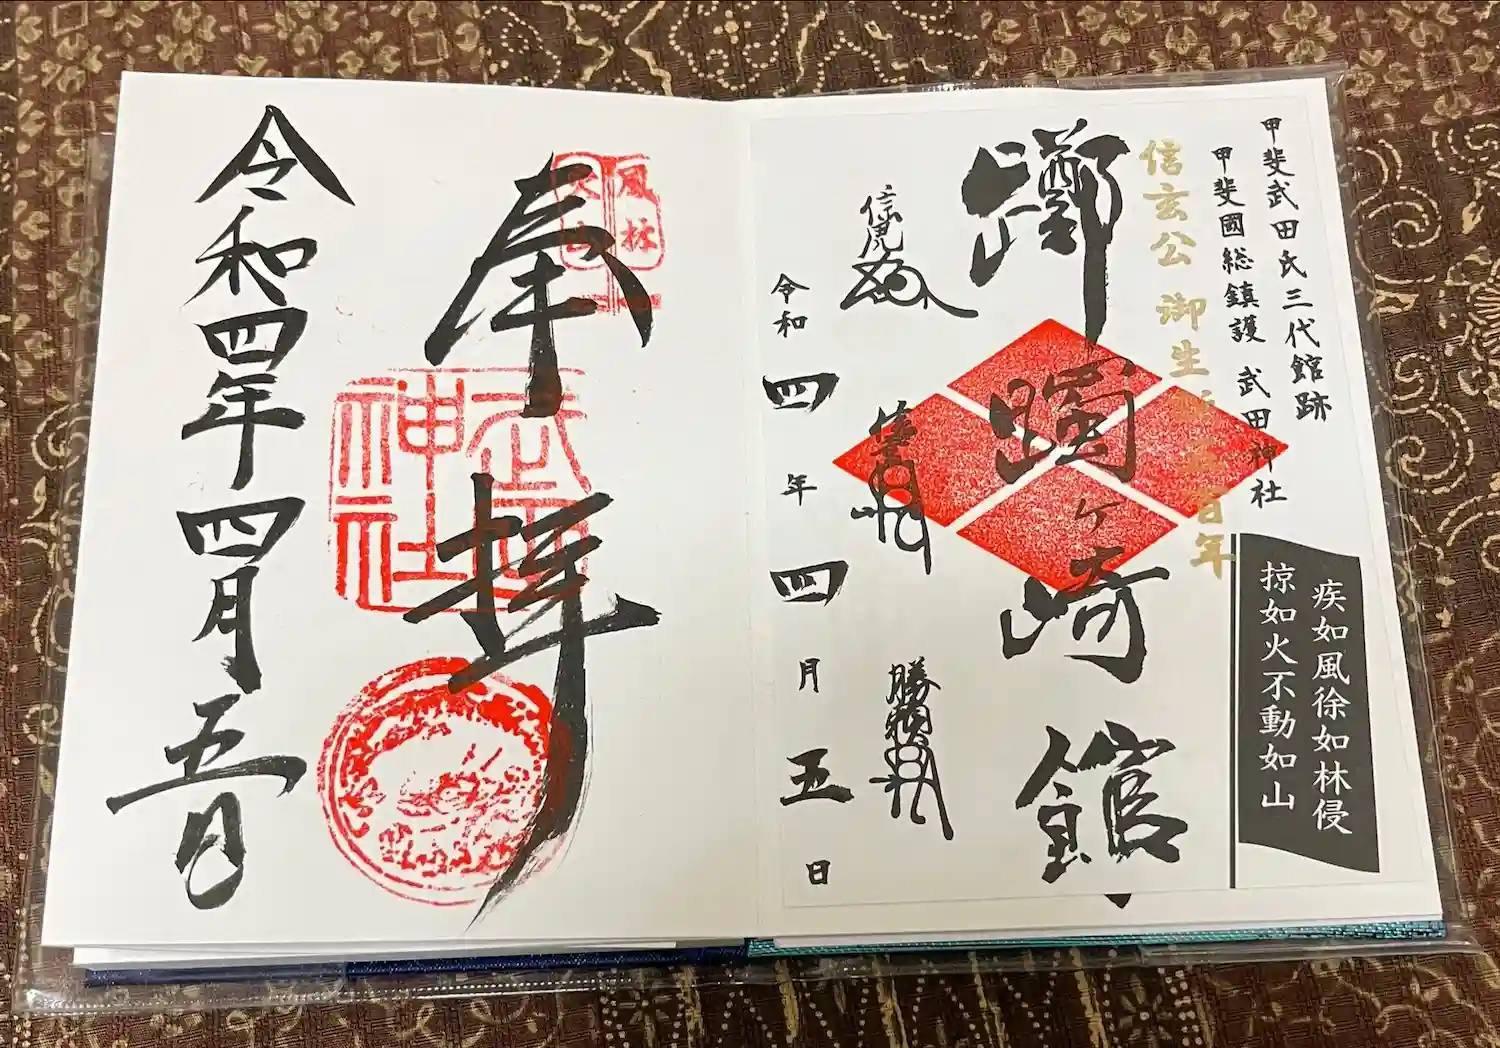 甲斐武田氏三代館跡
甲斐國総鎮護 武田神社
疾如風徐如林侵
掠如火不動如山
信玄公 御生誕五百年
躑躅ヶ崎館
信虎
信玄
勝頼
令和四年四月五日
風林
火山
奉拝
武田
神社
令和四年四月五日